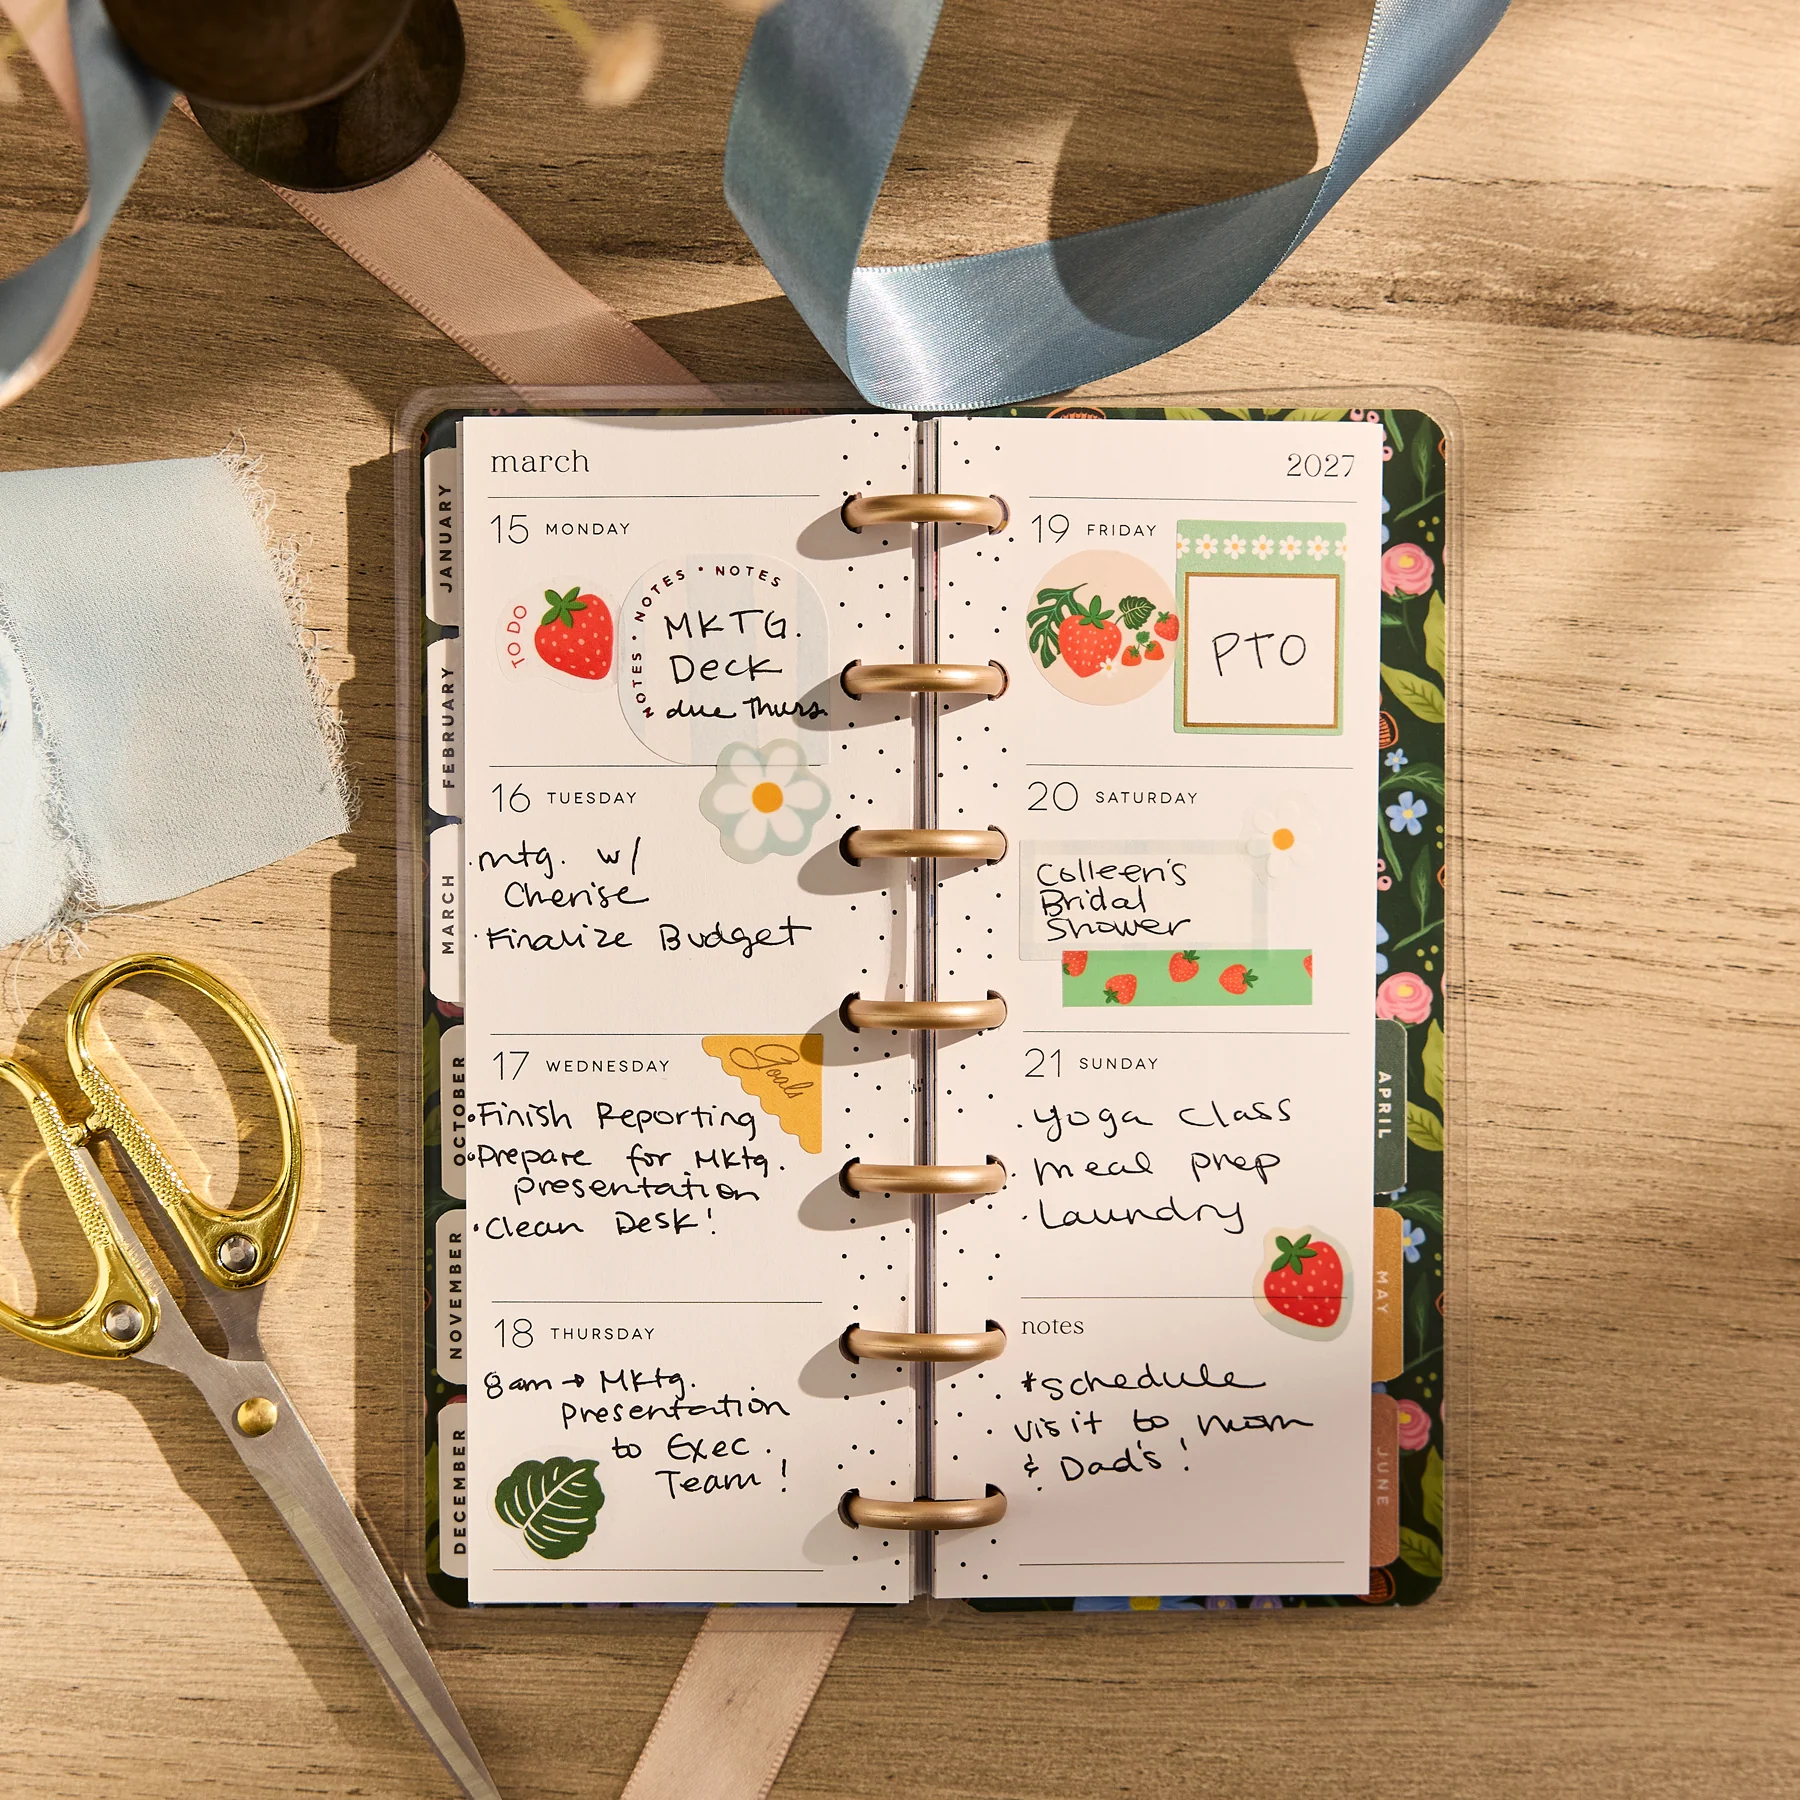 march
15 MONDAY
TO DO
NOTES • NOTES • NOTES
MKTG.
Deck
due Thurs.
16 TUESDAY
· mtg. w/
Cherise
· Finalize Budget
17 WEDNESDAY
Goals
• Finish Reporting
• Prepare for Mktg.
presentation
• Clean Desk!
18 THURSDAY
8am → Mktg.
Presentation
to Exec.
Team!
2027
19 FRIDAY
PTO
20 SATURDAY
Colleen's
Bridal
Shower
21 SUNDAY
· yoga class
· meal prep
· Laundry
notes
*schedule
visit to mom
& Dad's!
JANUARY
FEBRUARY
MARCH
OCTOBER
NOVEMBER
DECEMBER
APRIL
MAY
JUNE